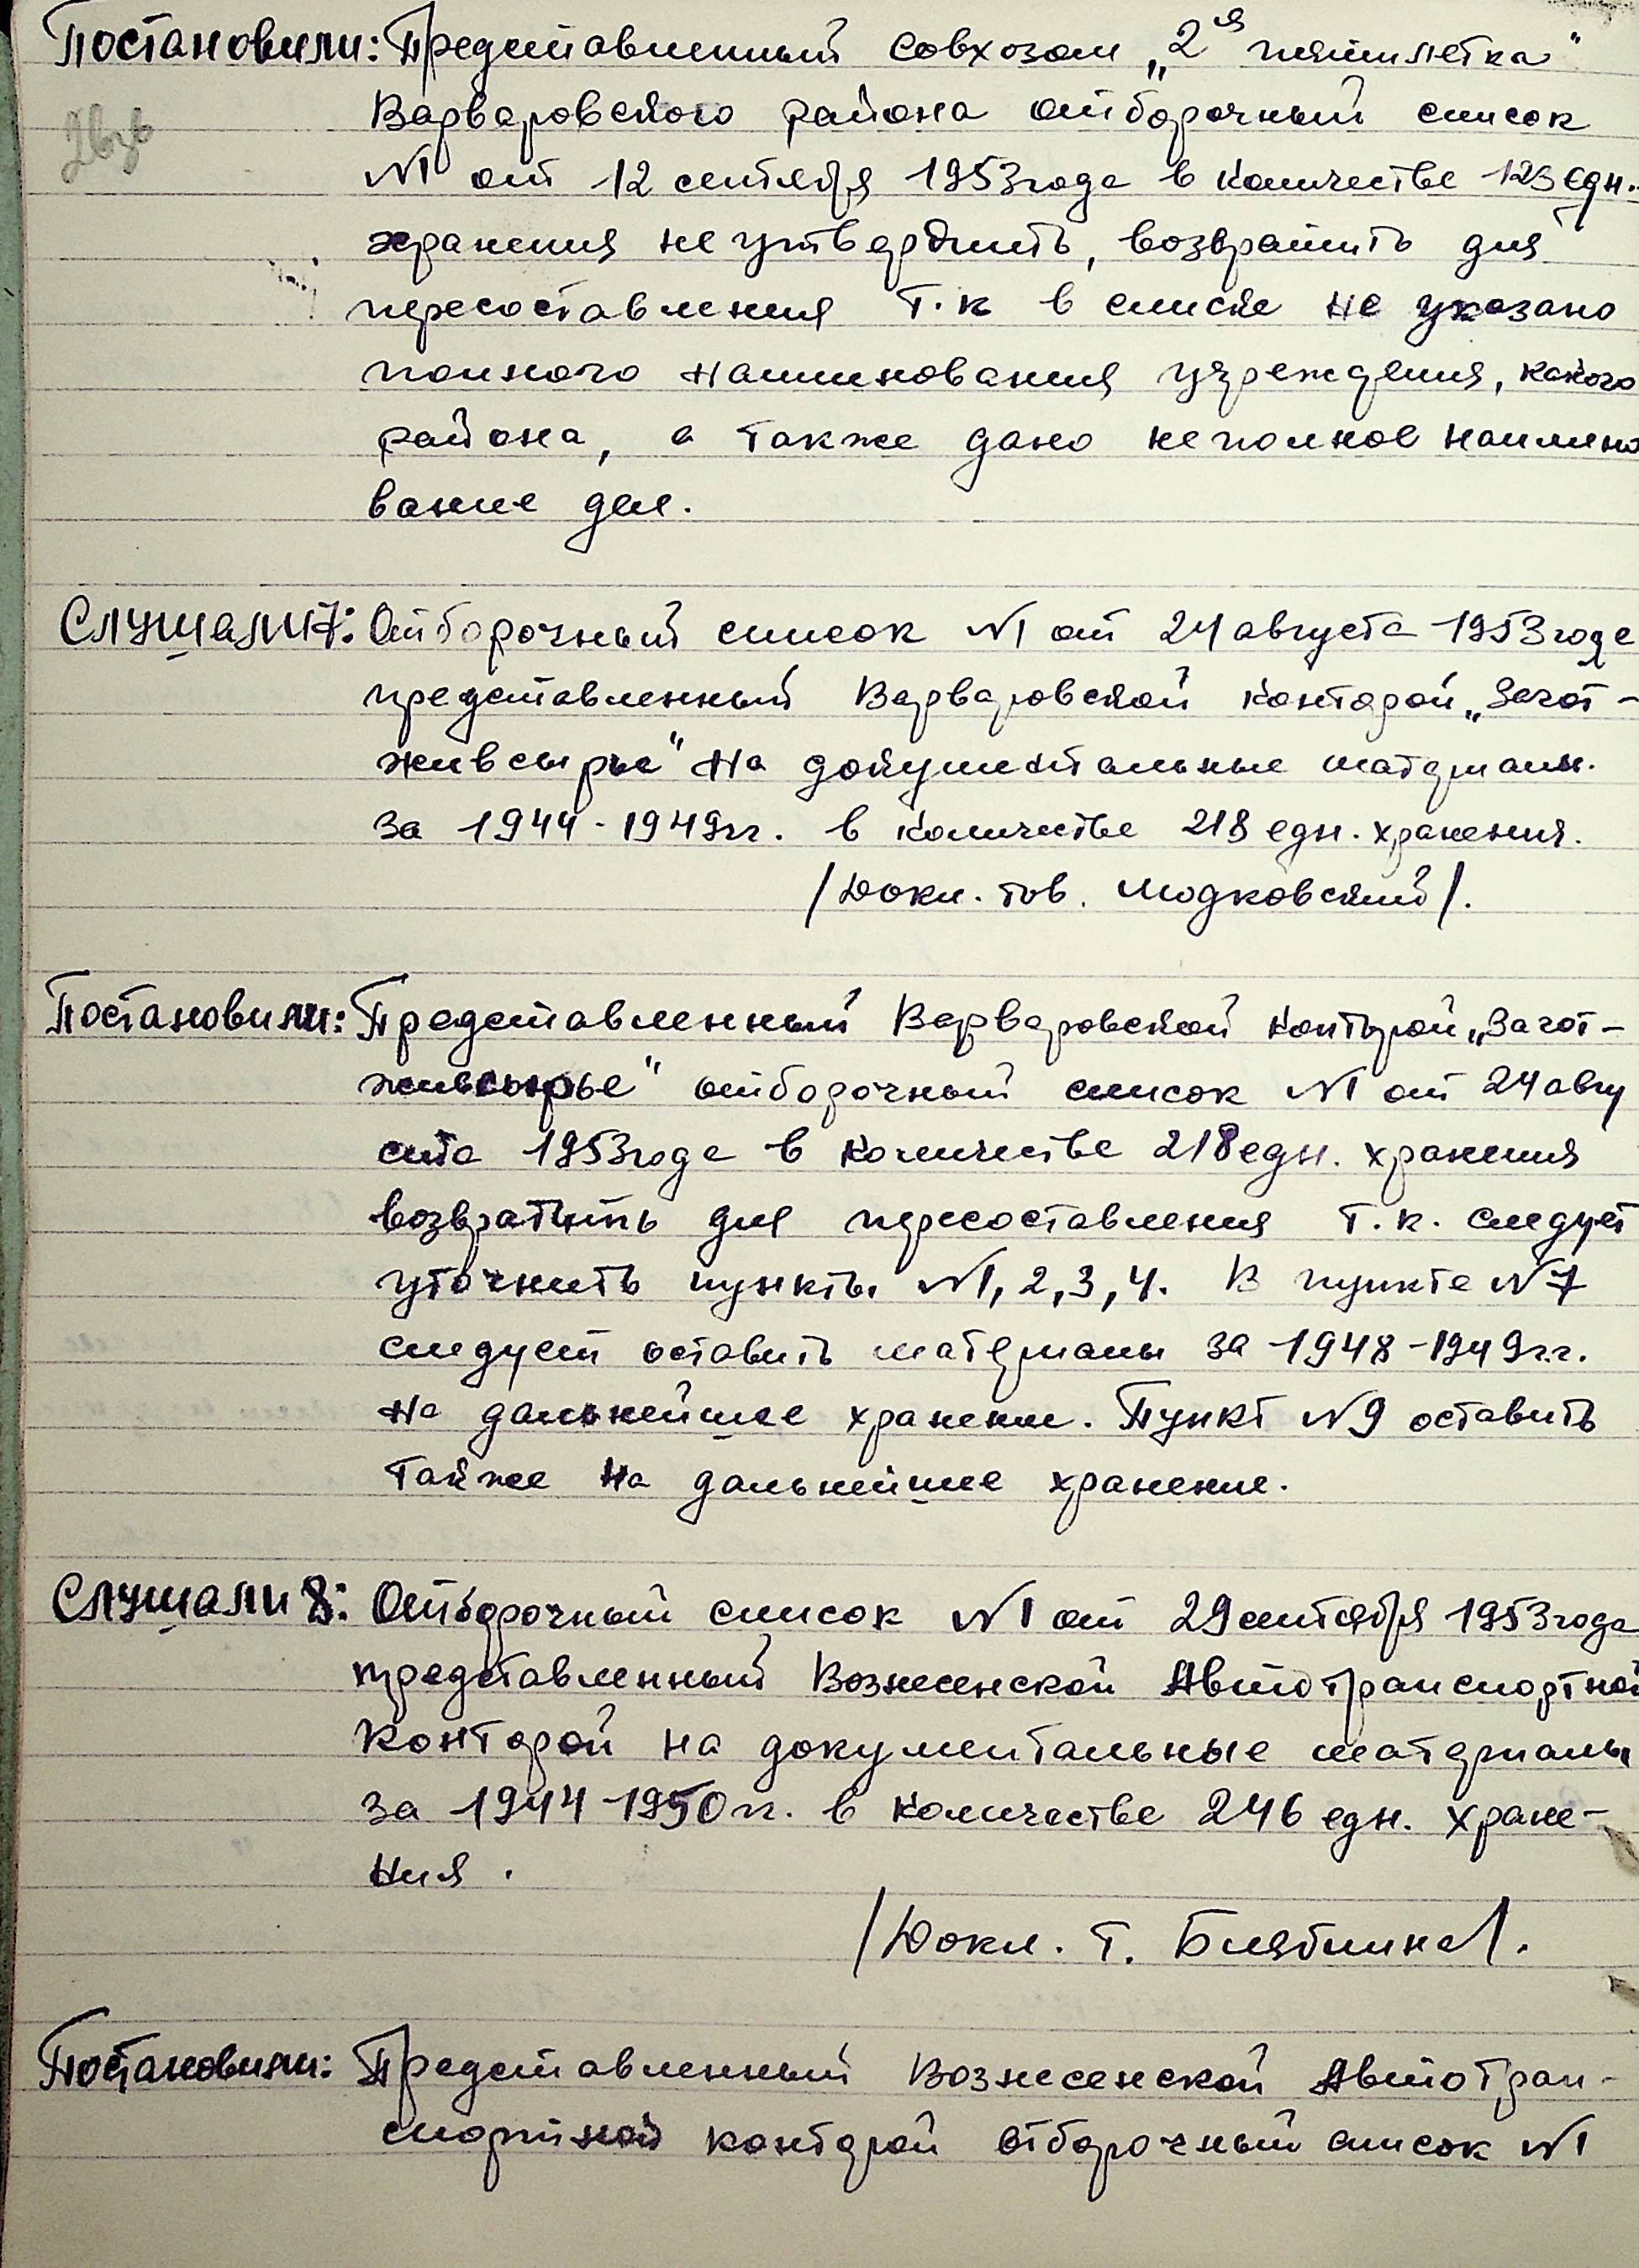 Постановили: Представленный совхозом „2ая пятилетка"
Варваровского района отборочный список
N1 от 12 сентября 1953 года в количестве 123 едн.
хранения не утвердить, возвратить для
пересоставления т.к в списке не указано
полного наименования учреждения, какого
района, а также дано неполное наимено
вание дел.
Слушали 7: Отборочный список N1 от 24 августа 1953 года
представленный Варваровской конторой „Загот-
живсырье" на документальные материалы.
за 1944-1949гг. в количестве 218 едн. хранения.
/Докл. тов. Модковский/.
Постановили: Представленный Варваровской конторой „Загот-
живсырье" отборочный список N1 от 24 авгу
ста 1953 года в количестве 218 едн. хранения
возвратить для пересоставления т.к. следует
уточнить пункты N1, 2, 3, 4. В пункте N7
следует оставить материалы за 1948-1949г.г.
на дальнейшее хранение. Пункт N9 оставить
также на дальнейшее хранение.
Слушали 8: Отборочный список N1 от 29 сентября 1953 года
представленный Вознесенской Автотранспортной
конторой на документальные материалы
за 1944-1950гг. в количестве 246 едн. хране-
ния.
/Докл. т. Билябкина/.
Постановили: Представленный Вознесенской Автотран-
спортной конторой отборочный список N1